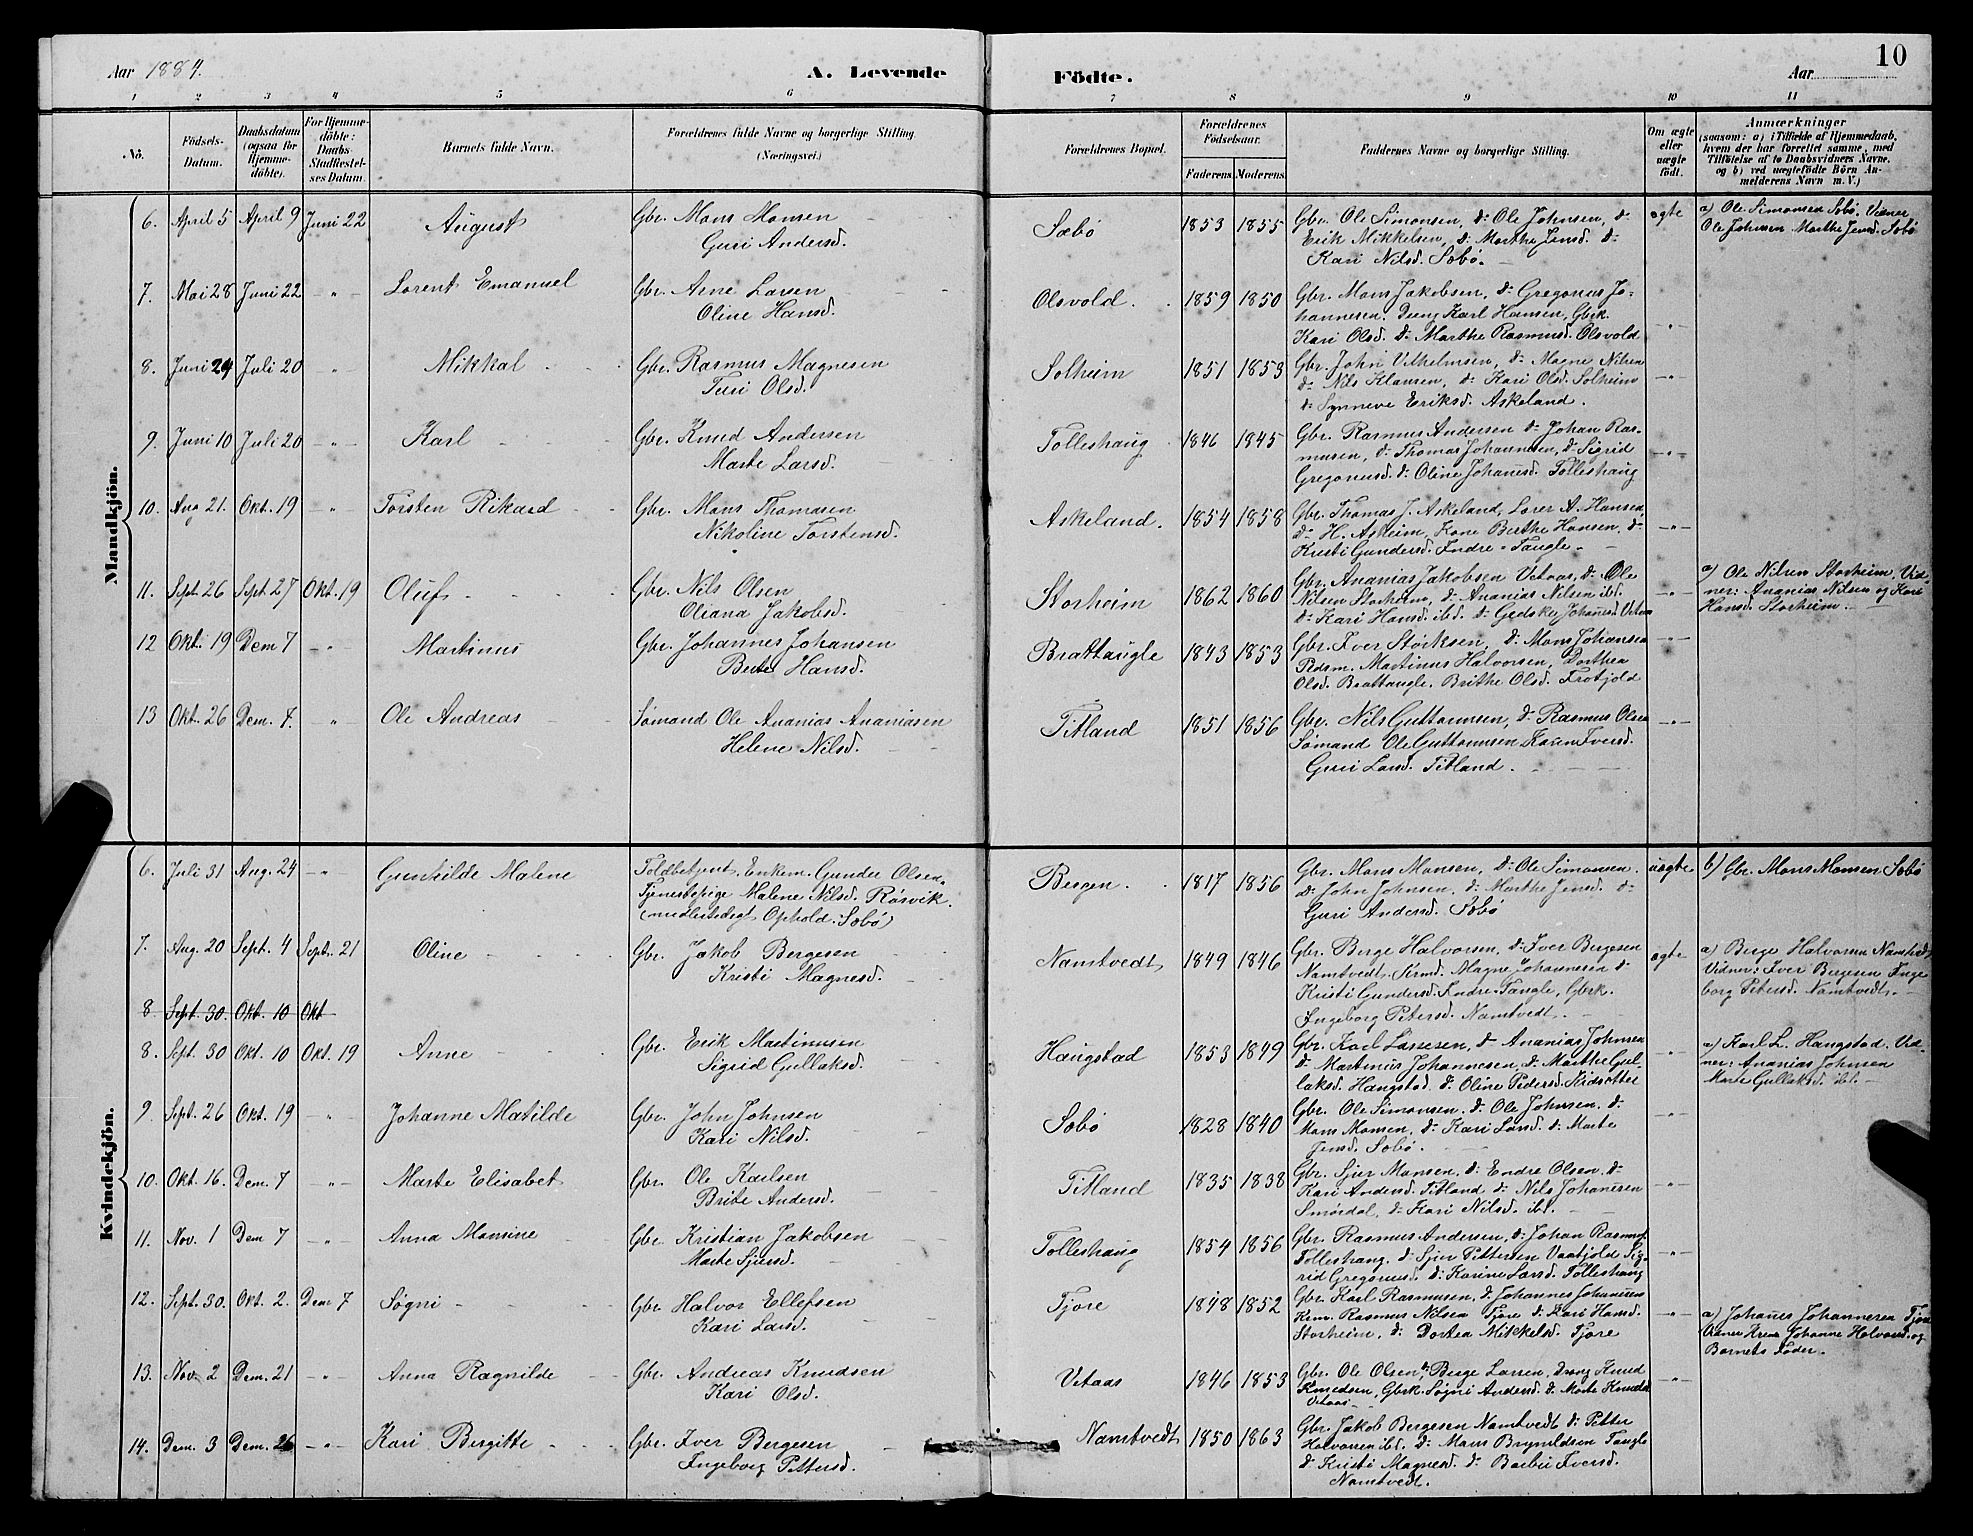 Aar 1884.
A. Levende Födte.
Aar
10
1 2 3 4 5 6 7 8 9 10 11
No.
Födsels-Datum.
Daabsdatum (ogsaa for Hjemme-döbte).
For Hjemme-döbte: Daabs-Stadfæstel-ses Datum.
Barnets fulde Navn.
Forældrenes fulde Navne og borgerlige Stilling. (Næringsvei.)
Forældrenes Bopæl.
Forældrenes Födselsaar.
Faderens Moderens
Faddernes Navne og borgerlige Stilling.
Om ægte eller uægte födt.
Anmærkninger (saasom: a) i Tilfælde af Hjemmedaab, hvem der har forrettet samme, med Tilföielse af to Daabsvidners Navne. og b) ved uægtefödte Börn An-melderens Navn m. V.)
Mandkjön.
6. April 5 April 9 Juni 22 August Gbr. Mons Monsen Sæbö 1853 1855 Gbr. Ole Simonsen, d: Ole Johnsen, d: ægte a) Ole Simonsen Söbö. Vidner
Guri Andersd. Erik Mikkelsen, d: Marthe Jensd. d: Ole Johnsen Marthe Jensd. Söbö
Kari Nilsd. Söbö.
7. Mai 28 Juni 22 " Lorent Emanuel Gbr. Arne Larsen Olsvold. 1859 1850 Gbr. Mons Jakobsen, d: Gregorius Jo-
Oline Hansd. hannesen. Dreng Karl Hansen, Gbrk.
Kari Olsd. d: Marthe Rasmusd. Olsvold "
8. Juni 24 Juli 20 " Mikkal Gbr. Rasmus Magnesen Solheim 1851 1853 Gbr. John Vilhelmsen, d: Magne Nilsen
Turi Olsd. d: Nils Klausen, d: Kari Olsd. Solheim "
d: Synneve Eriksd. Askeland.
9. Juni 10 Juli 20 " Karl Gbr. Knud Andersen Tolleshaug 1846 1845 Gbr. Rasmus Andersen d: Johan Ras-
Marte Larsd. musen, d: Thomas Johannesen, d: Sigrid "
Gregoriusd. d: Oline Johansd. Tolleshaug
10. Aug 21. Okt. 19 " Torsten Rikard Gbr. Mons Thomasen Askeland. 1854 1858 Gbr. Thomas J. Askeland, Lærer A. Hansen,
Nikoline Torstensd. d: H. Askeim, Kone Berthe Hansen, d: "
Kristi Gundersd. Indre-Taugle.
11. Sept. 26 Sept. 27 Okt. 19 Oluf Gbr. Nils Olsen Storheim 1862 1860 Gbr. Ananias Jakobsen Vetaas, d: Ole a) Ole Nilsen Storheim, Vid-
Oliana Jakobsd. Nilsen Storheim, d: Ananias Nilsen ibd. " ner: Ananias Nilsen og Kari
d: Kari Hansd. ibd. d: Gjedske Johansd Vetaas Hansd. Storheim.
12 Okt. 19 Dem 7 " Martinus Gbr. Johannes Johansen Brattaugle 1843 1853 Gbr. Iver Störksen, d: Mons Johansen "
Berte Hansd. Pedsm. Martinus Halvorsen, Dorthea
Olsd. Brattaugle. Brithe Olsd. Frotjold
13 Okt. 26 Dem. 7. " Ole Andreas Sømand Ole Ananias Ananiasen Titland 1851 1856 Gbr. Nils Guttormsen, d: Rasmus Olsen "
Helene Nilsd. Sømand Ole Guttormsen Karen Iversd.
Guri Larsd. Titland.
Kvindekjön.
6. Juli 31 Aug. 24 " Gunhilde Malene Toldbetjent, Enkem. Gunder Olsen, Bergen. 1817 1856 Gbr. Mons Monsen, d: Ole Simonsen. uægte b) Gbr. Mons Monsen Söbö
Tjenestepige Malene Nilsd. Rösvik. d: John Johnsen, d: Marthe Jensd. d:
(midlertidigt Ophold: Söbö) Guri Andersd. Söbö
7. Aug. 20 Sept. 4 Sept. 21 Oline Gbr. Jakob Bergesen Namtvedt 1849 1846 Gbr. Berge Halvorsen, d: Iver Bergesen ægte a) Berge Halvorsen Namtvedt
Kristi Magnesd. Namtvedt. Magne Johannesen d: Vidner: Iver Bergesen Inge
Kristi Gundersd. Indre-Taugle, Gbrk. borg Petersd. Namtvedt.
8 Sept. 30. Okt. 10 Okt Ingeborg Petersd. Namtvedt.
8. Sept. 30 Okt. 10 Okt. 19 Anne Gbr. Erik Martinusen Haugstad 1853 1849 Gbr. Karl Larsen, d: Ananias Johnsen " a) Karl L. Haugstad. Vid-
Sigrid Gullaksd. d: Martinus Johannesen, d: Marthe Gul- ner: Ananias Johnsen
laksd. Haugstad. d: Oline Pedersd. Kidsetter Marte Gullaksd. ibd.
9 Sept. 26 Okt. 19 " Johanne Matilde Gbr. John Johnsen Söbö 1828 1840 Gbr. Ole Simonsen. d: Ole Johnsen. d: "
Kari Nilsd. Mons Monsen, d: Kari Larsd. d: Marte
Jensd. Söbö.
10. Okt. 16. Dem. 7 " Marte Elisabet Gbr. Ole Karlsen Titland 1835 1838 Gbr. Sjur Monsen, d: Endre Olsen. d: "
Brite Andersd. Kari Andersd. Titland d: Nils Johannesen
Smördal, d: Kari Nilsd. ibd.
11. Nov. 1 Dem 7 " Anna Monsine Gbr. Kristian Jakobsen Tolleshaug 1854 1856 Gbr. Rasmus Andersen, d: Johan Rasmus.
Marte Sjursd. Tolleshaug. d: Sjur Pettersen Vaatjold Sig- "
rid Gregoriusd. d: Karine Larsd. Tolleshaug
12. Sept. 30. Okt. 2. Dem 7 Søgni Gbr. Halvor Ellefsen Fjøre 1848 1852 Gbr. Karl Rasmusen, d: Johannes Johannesen
Kari Larsd. Krm. Rasmus Nilsen Fjøre d: Kari Hansd. " a) Johannes Johannesen Fjøre
Storheim, d: Dortea Mikkelsd. Fjøre Vidner Johanne Halvorsd. og
Barnets Fader.
13. Nov. 2 Dem. 21 " Anna Ragnilde Gbr. Andreas Knudsen Vetaas 1846 1853 Gbr. Ole Olsen, d: Berge Larsen, Dreng Knud
Kari Olsd. Knudsen, Gbrk. Søgni Andersd. d: Marte Knudsd "
Vetaas
14. Dem. 3 Dem. 26 " Kari Bergitte Gbr. Iver Bergesen Namtvedt 1850 1863 Gbr. Jakob Bergesen Namtvedt d: Petter
Ingeborg Pettersd. Halvorsen ibd. d: Mons Brynildsen Taugle "
d: Kristi Magnesd. d: Barbu Iversd.
Namtvedt.